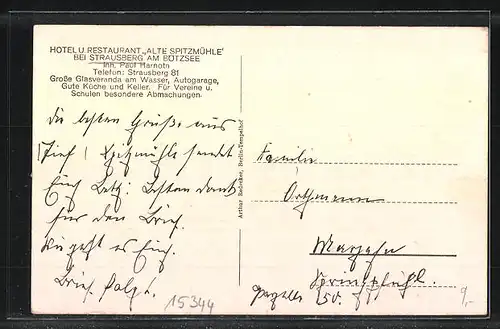 HOTEL U. RESTAURANT „ALTE SPITZMÜHLE"
BEI STRAUSBERG AM BÖTZSEE
Inh. Paul Harnoth
Telefon: Strausberg 81
Große Glasveranda am Wasser, Autogarage,
Gute Küche und Keller. Für Vereine u.
Schulen besondere Abmachungen.
Die besten Grüße aus
Spitzmühle sendet
Euch Besten Dank
für den Brief.
Wie geht es Euch.
Brief folgt.
15344
Berlin-Tempelhof
Familie
Orthmann
Marzahn
9,-